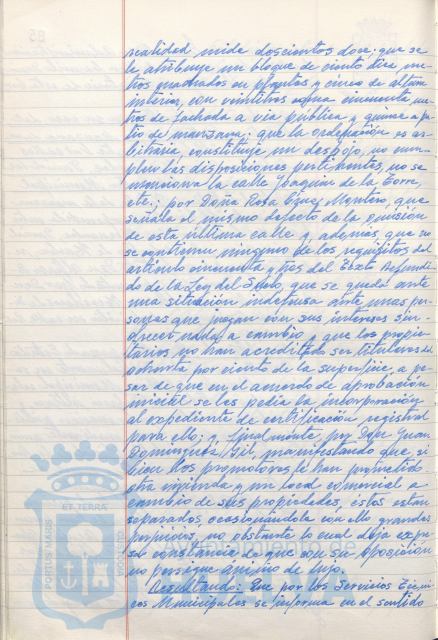 realidad mide doscientos doce; que se
le atribuye un bloque de ciento diez me-
tros cuadrados en plantas y cinco de altura
interior, con veintitrés cincuenta me-
tros de fachada a vía pública y quince a pa-
tio de manzana; que la ordenación es ar-
bitraria, constituye un despojo, no cum-
plen las disposiciones pertinentes, no se
menciona la calle Joaquín de la Torre,
etc.; por Doña Rosa Montero, que
señala el mismo defecto de la omisión
de esta última calle y, además, que no
se contienen ninguno de los requisitos del
artículo cincuenta y tres del Texto Refundi-
do de la Ley del Suelo, que se queda ante
una situación indefensa ante unas per-
sonas que juegan con sus intereses sin
ofrecer nada a cambio y que los propie-
tarios no han acreditado ser titulares del
ochenta por ciento de la superficie, a pe-
sar de que en el acuerdo de aprobación
inicial se les pedía la incorporación
al expediente de certificación registral
para ello; y, finalmente, por Don Juan
Domínguez Gil, manifestando que, si
bien los promotores le han prometido
otra vivienda y un local comercial a
cambio de sus propiedades, éstos están
separados, ocasionándola con ello grandes
perjuicios, no obstante lo cual deja expre-
sa constancia de que con su oposición
no persigue ánimo de lujo.
Resultando: Que por los Servicios Técni-
cos Municipales se informa en el sentido
ET TERRA
PORTUS MARIS
CUSTODIA